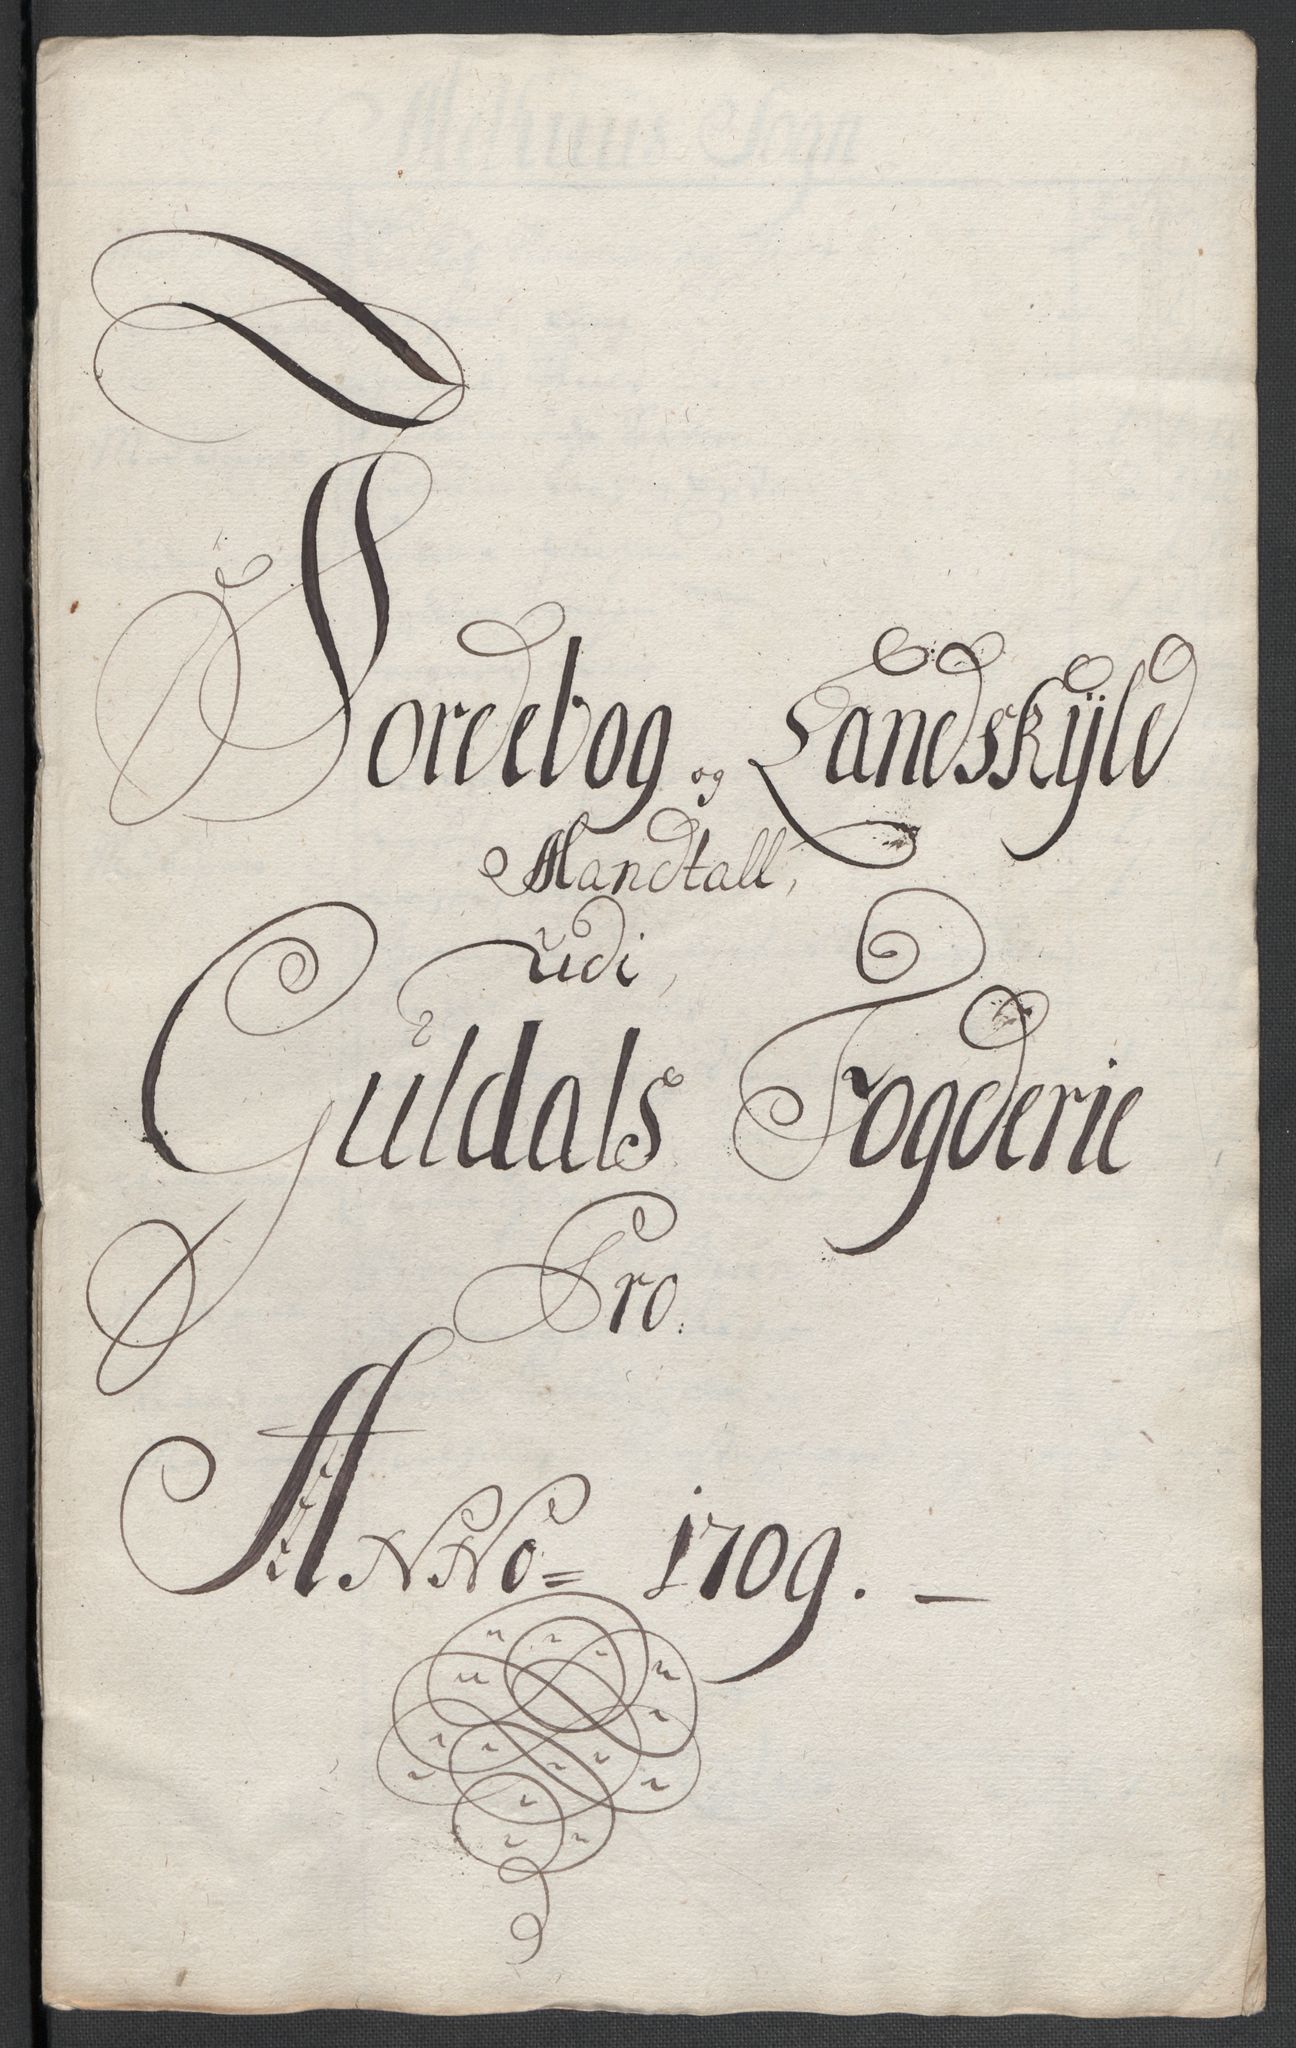 Jordebog og Landskÿld
Mandtall,
udi,
Guldals Fogderie
Pro.
ANNo= 1709. —